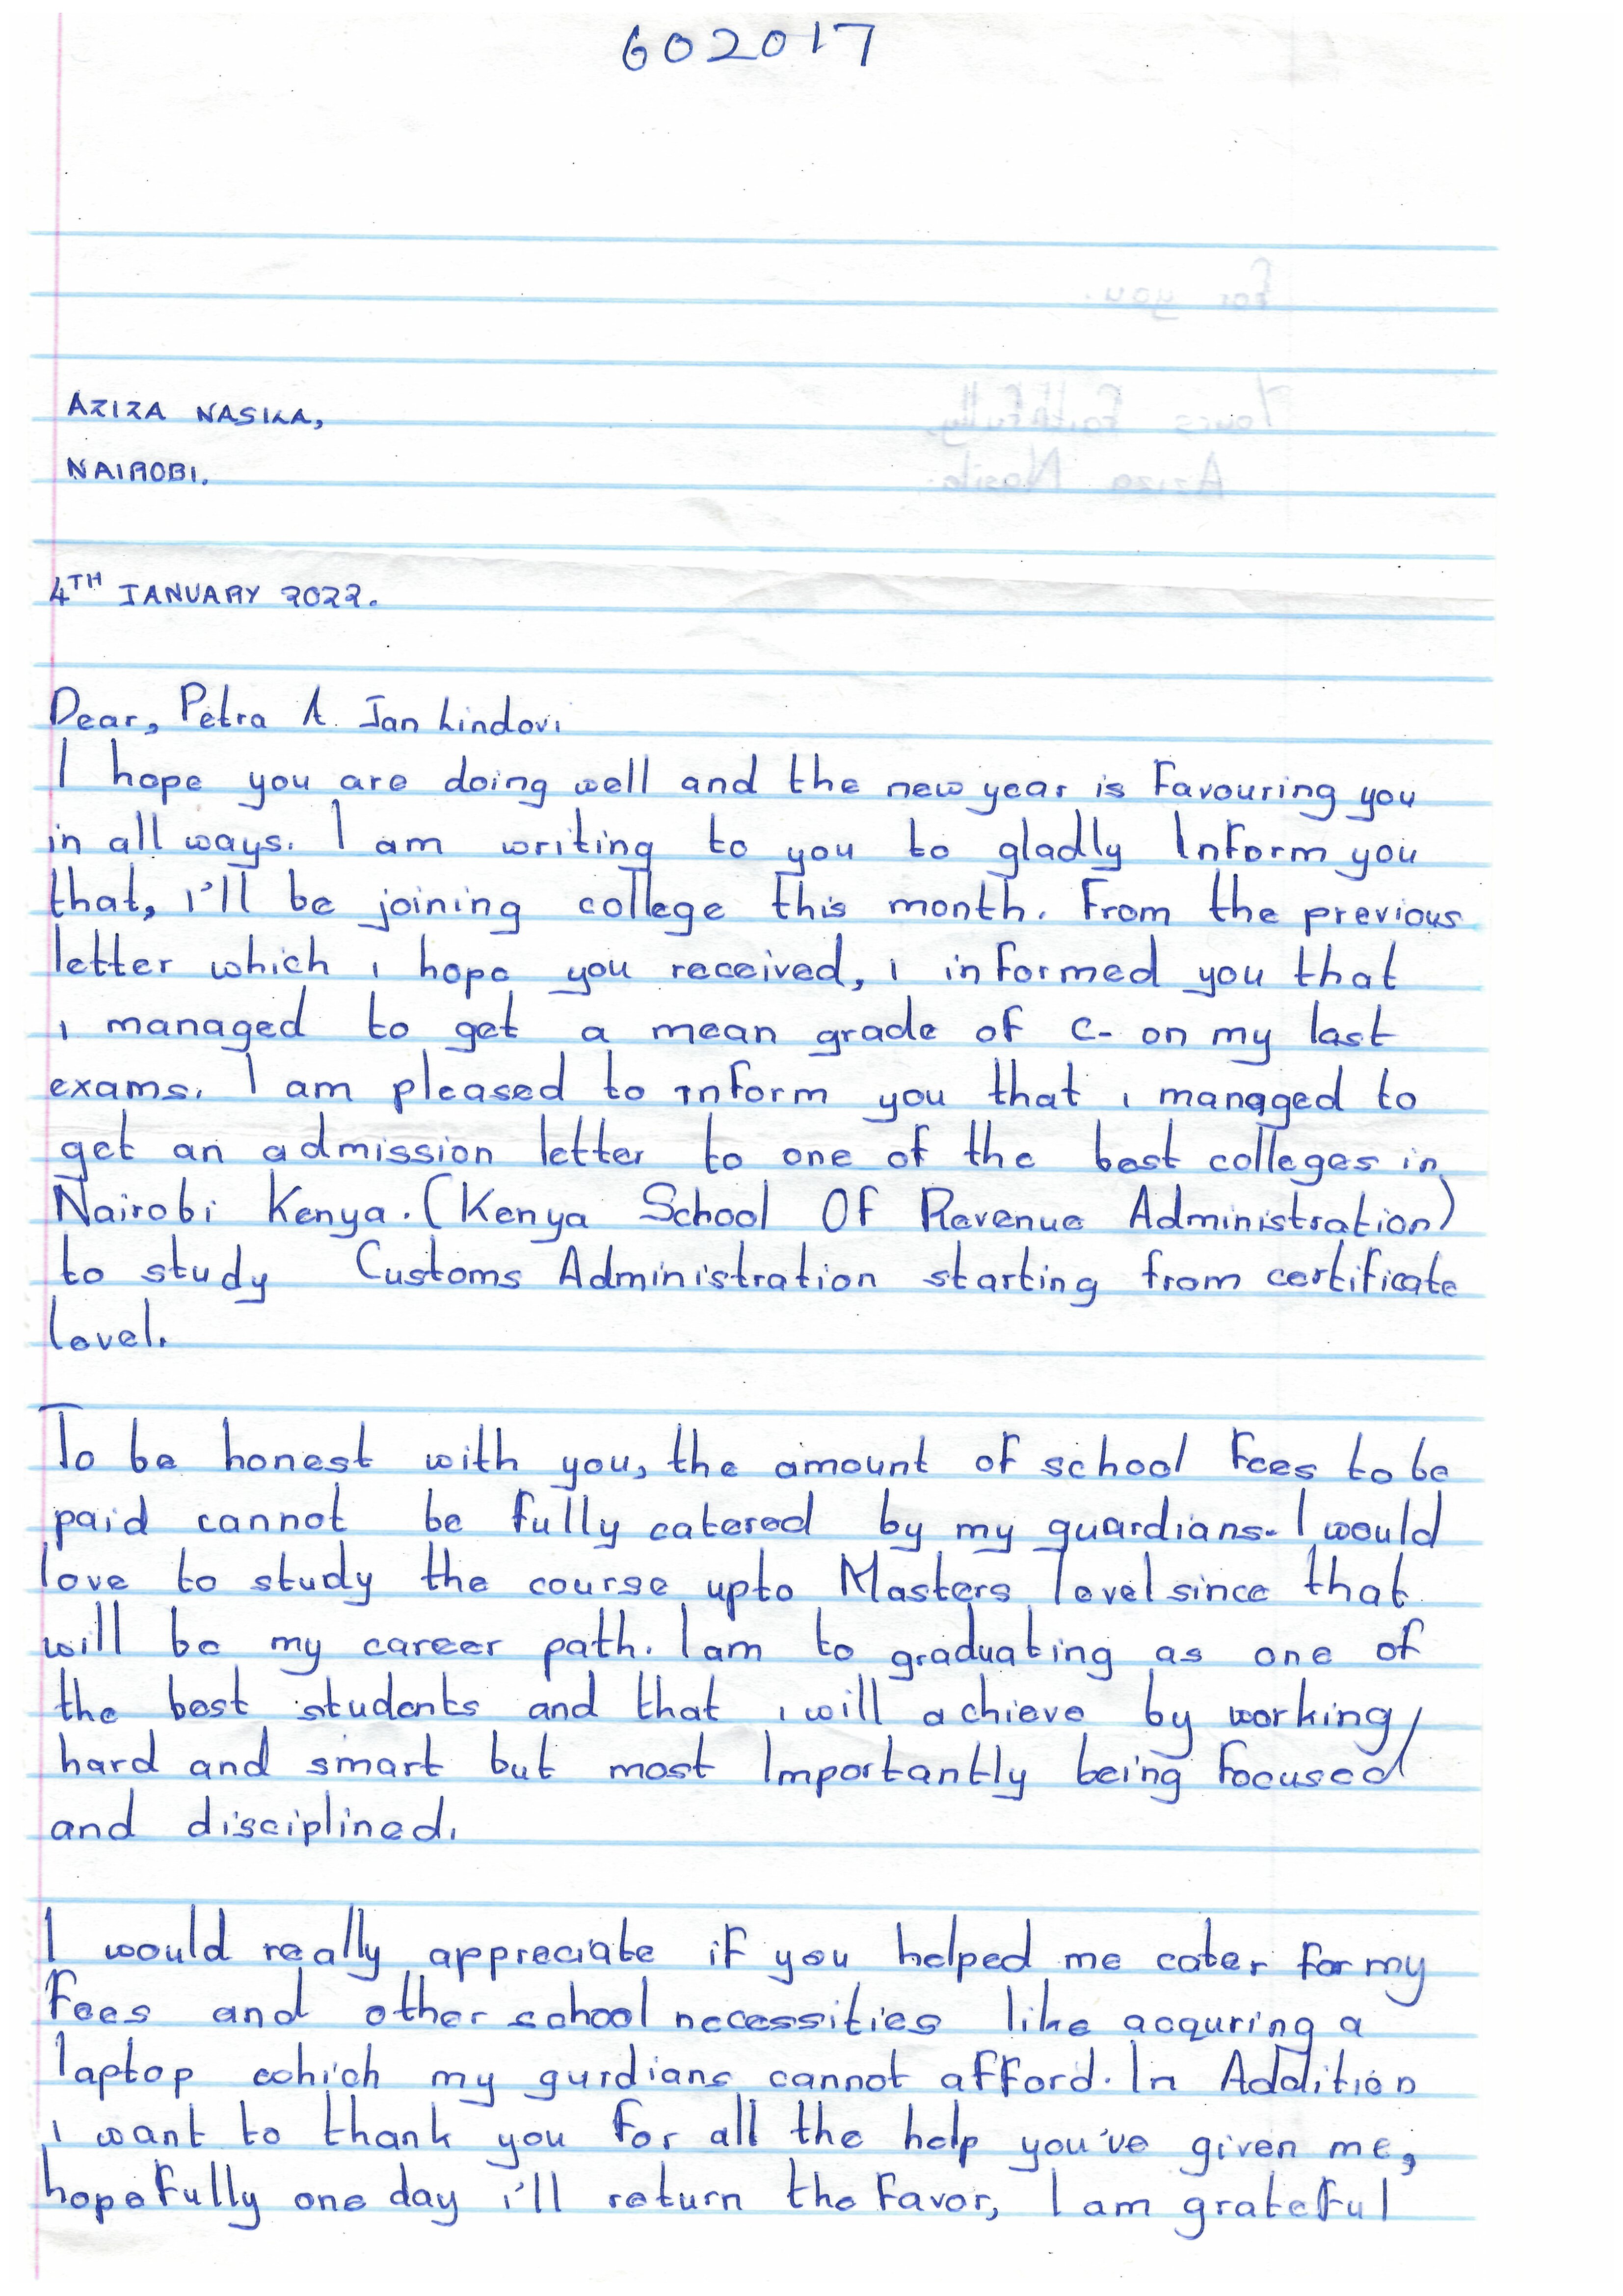 602017
AZIZA NASIKA,
NAIROBI.
4TH JANUARY 2022.
Dear, Petra A. Jan Lindovi
I hope you are doing well and the new year is favouring you
in all ways. I am writing to you to gladly Inform you
that, i'll be joining college this month. From the previous
letter which i hope you received, i informed you that
i managed to get a mean grade of C- on my last
exams. I am pleased to inform you that i managed to
get an admission letter to one of the best colleges in
Nairobi Kenya. (Kenya School Of Revenue Administration)
to study Customs Administration starting from certificate
level.
To be honest with you, the amount of school fees to be
paid cannot be fully catered by my guardians. I would
love to study the course upto Masters level since that
will be my career path. I am to graduating as one of
the best students and that i will achieve by working
hard and smart but most Importantly being focused
and disciplined.
I would really appreciate if you helped me cater for my
fees and other school necessities like acquring a
laptop which my gurdians cannot afford. In Addition
i want to thank you for all the help you've given me,
hopefully one day i'll return the favor, I am grateful
for you.
Yours Faithfully,
Aziza Nasika.